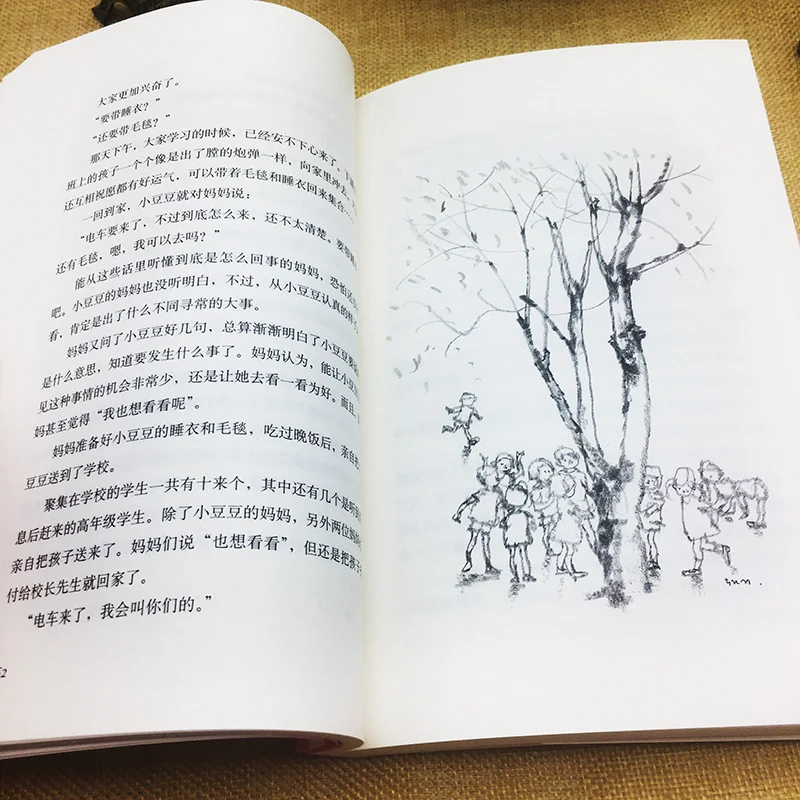 大家更加兴奋了。
“要带睡衣？”
“还要带毛毯？”
那天下午，大家学习的时候，已经安不下心来了，
班上的孩子一个个像是出了膛的炮弹一样，向家里冲去，
还互相祝愿都有好运气，可以带着毛毯和睡衣回来集合…
一回到家，小豆豆就对妈妈说：
“电车要来了，不过到底怎么来，还不太清楚。要带
还有毛毯，嗯，我可以去吗？”
能从这些话里听懂到底是怎么回事的妈妈，恐怕
吧。小豆豆的妈妈也没听明白，不过，从小豆豆认真的样
看，肯定是出了什么不同寻常的大事。
妈妈又问了小豆豆好几句，总算渐渐明白了小豆豆
是什么意思，知道要发生什么事了。妈妈认为，能让小豆
见这种事情的机会非常少，还是让她去看一看为好。而且，
妈甚至觉得“我也想看看呢”。
妈妈准备好小豆豆的睡衣和毛毯，吃过晚饭后，亲自把
豆豆送到了学校。
聚集在学校的学生一共有十来个，其中还有几个是听到
息后赶来的高年级学生。除了小豆豆的妈妈，另外两位妈妈
亲自把孩子送来了。妈妈们说“也想看看”，但还是把孩子
付给校长先生就回家了。
“电车来了，我会叫你们的。”
2